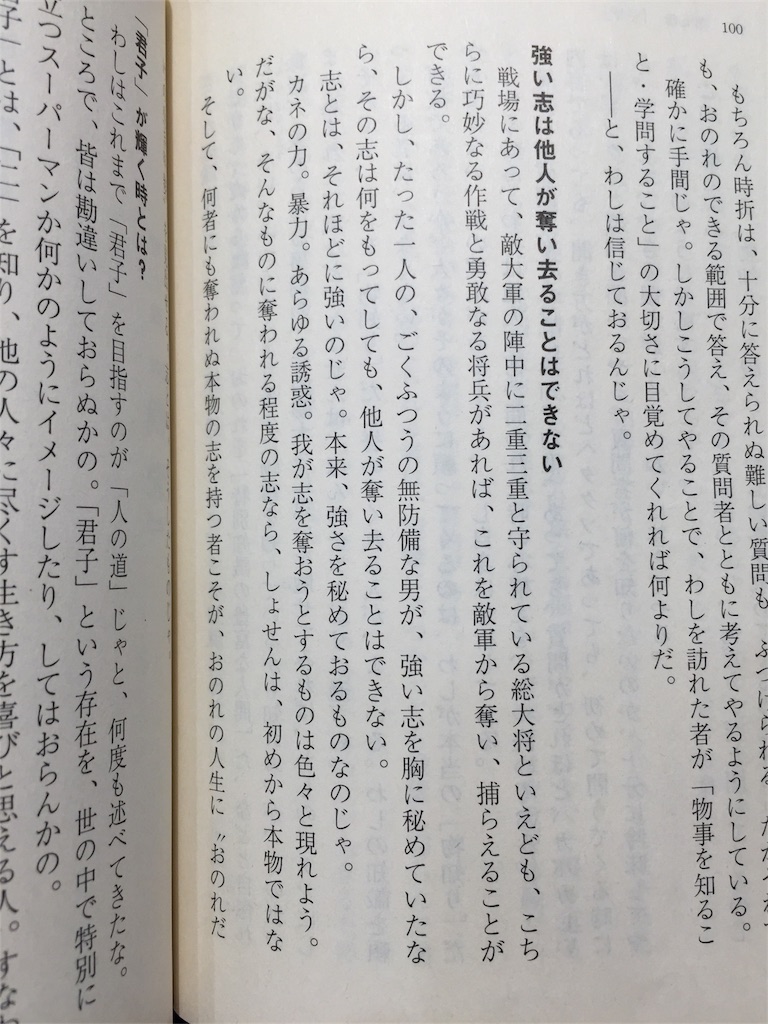 100
もちろん時折は、十分に答えられぬ難しい質問も、ぶつけられる。だけれど
も、おのれのできる範囲で答え、その質問者とともに考えてやるようにしている。
確かに手間じゃ。しかしこうしてやることで、わしを訪れた者が「物事を知るこ
と・学問すること」の大切さに目覚めてくれれば何よりだ。
――と、わしは信じておるんじゃ。
強い志は他人が奪い去ることはできない
戦場にあって、敵大軍の陣中に二重三重と守られている総大将といえども、こち
らに巧妙なる作戦と勇敢なる将兵があれば、これを敵軍から奪い、捕らえることが
できる。
しかし、たった一人の、ごくふつうの無防備な男が、強い志を胸に秘めていたな
ら、その志は何をもってしても、他人が奪い去ることはできない。
志とは、それほどに強いのじゃ。本来、強さを秘めておるものなのじゃ。
カネの力。暴力。あらゆる誘惑。我が志を奪おうとするものは色々と現れよう。
だがな、そんなものに奪われる程度の志なら、しょせんは、初めから本物ではな
い。
そして、何者にも奪われぬ本物の志を持つ者こそが、おのれの人生に〝おのれだ
「君子」が輝く時とは?
わしはこれまで「君子」を目指すのが「人の道」じゃと、何度も述べてきたな。
ところで、皆は勘違いしておらぬかの。「君子」という存在を、世の中で特別に
立つスーパーマンか何かのようにイメージしたり、してはおらんかの。
を知り、他の人々に尽くす生き方を喜びと思える人。すなわ